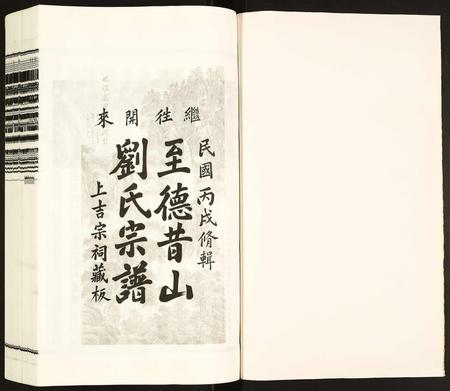 繼往開來
民國丙戌脩輯
至德昔山
劉氏宗譜
上吉宗祠藏板